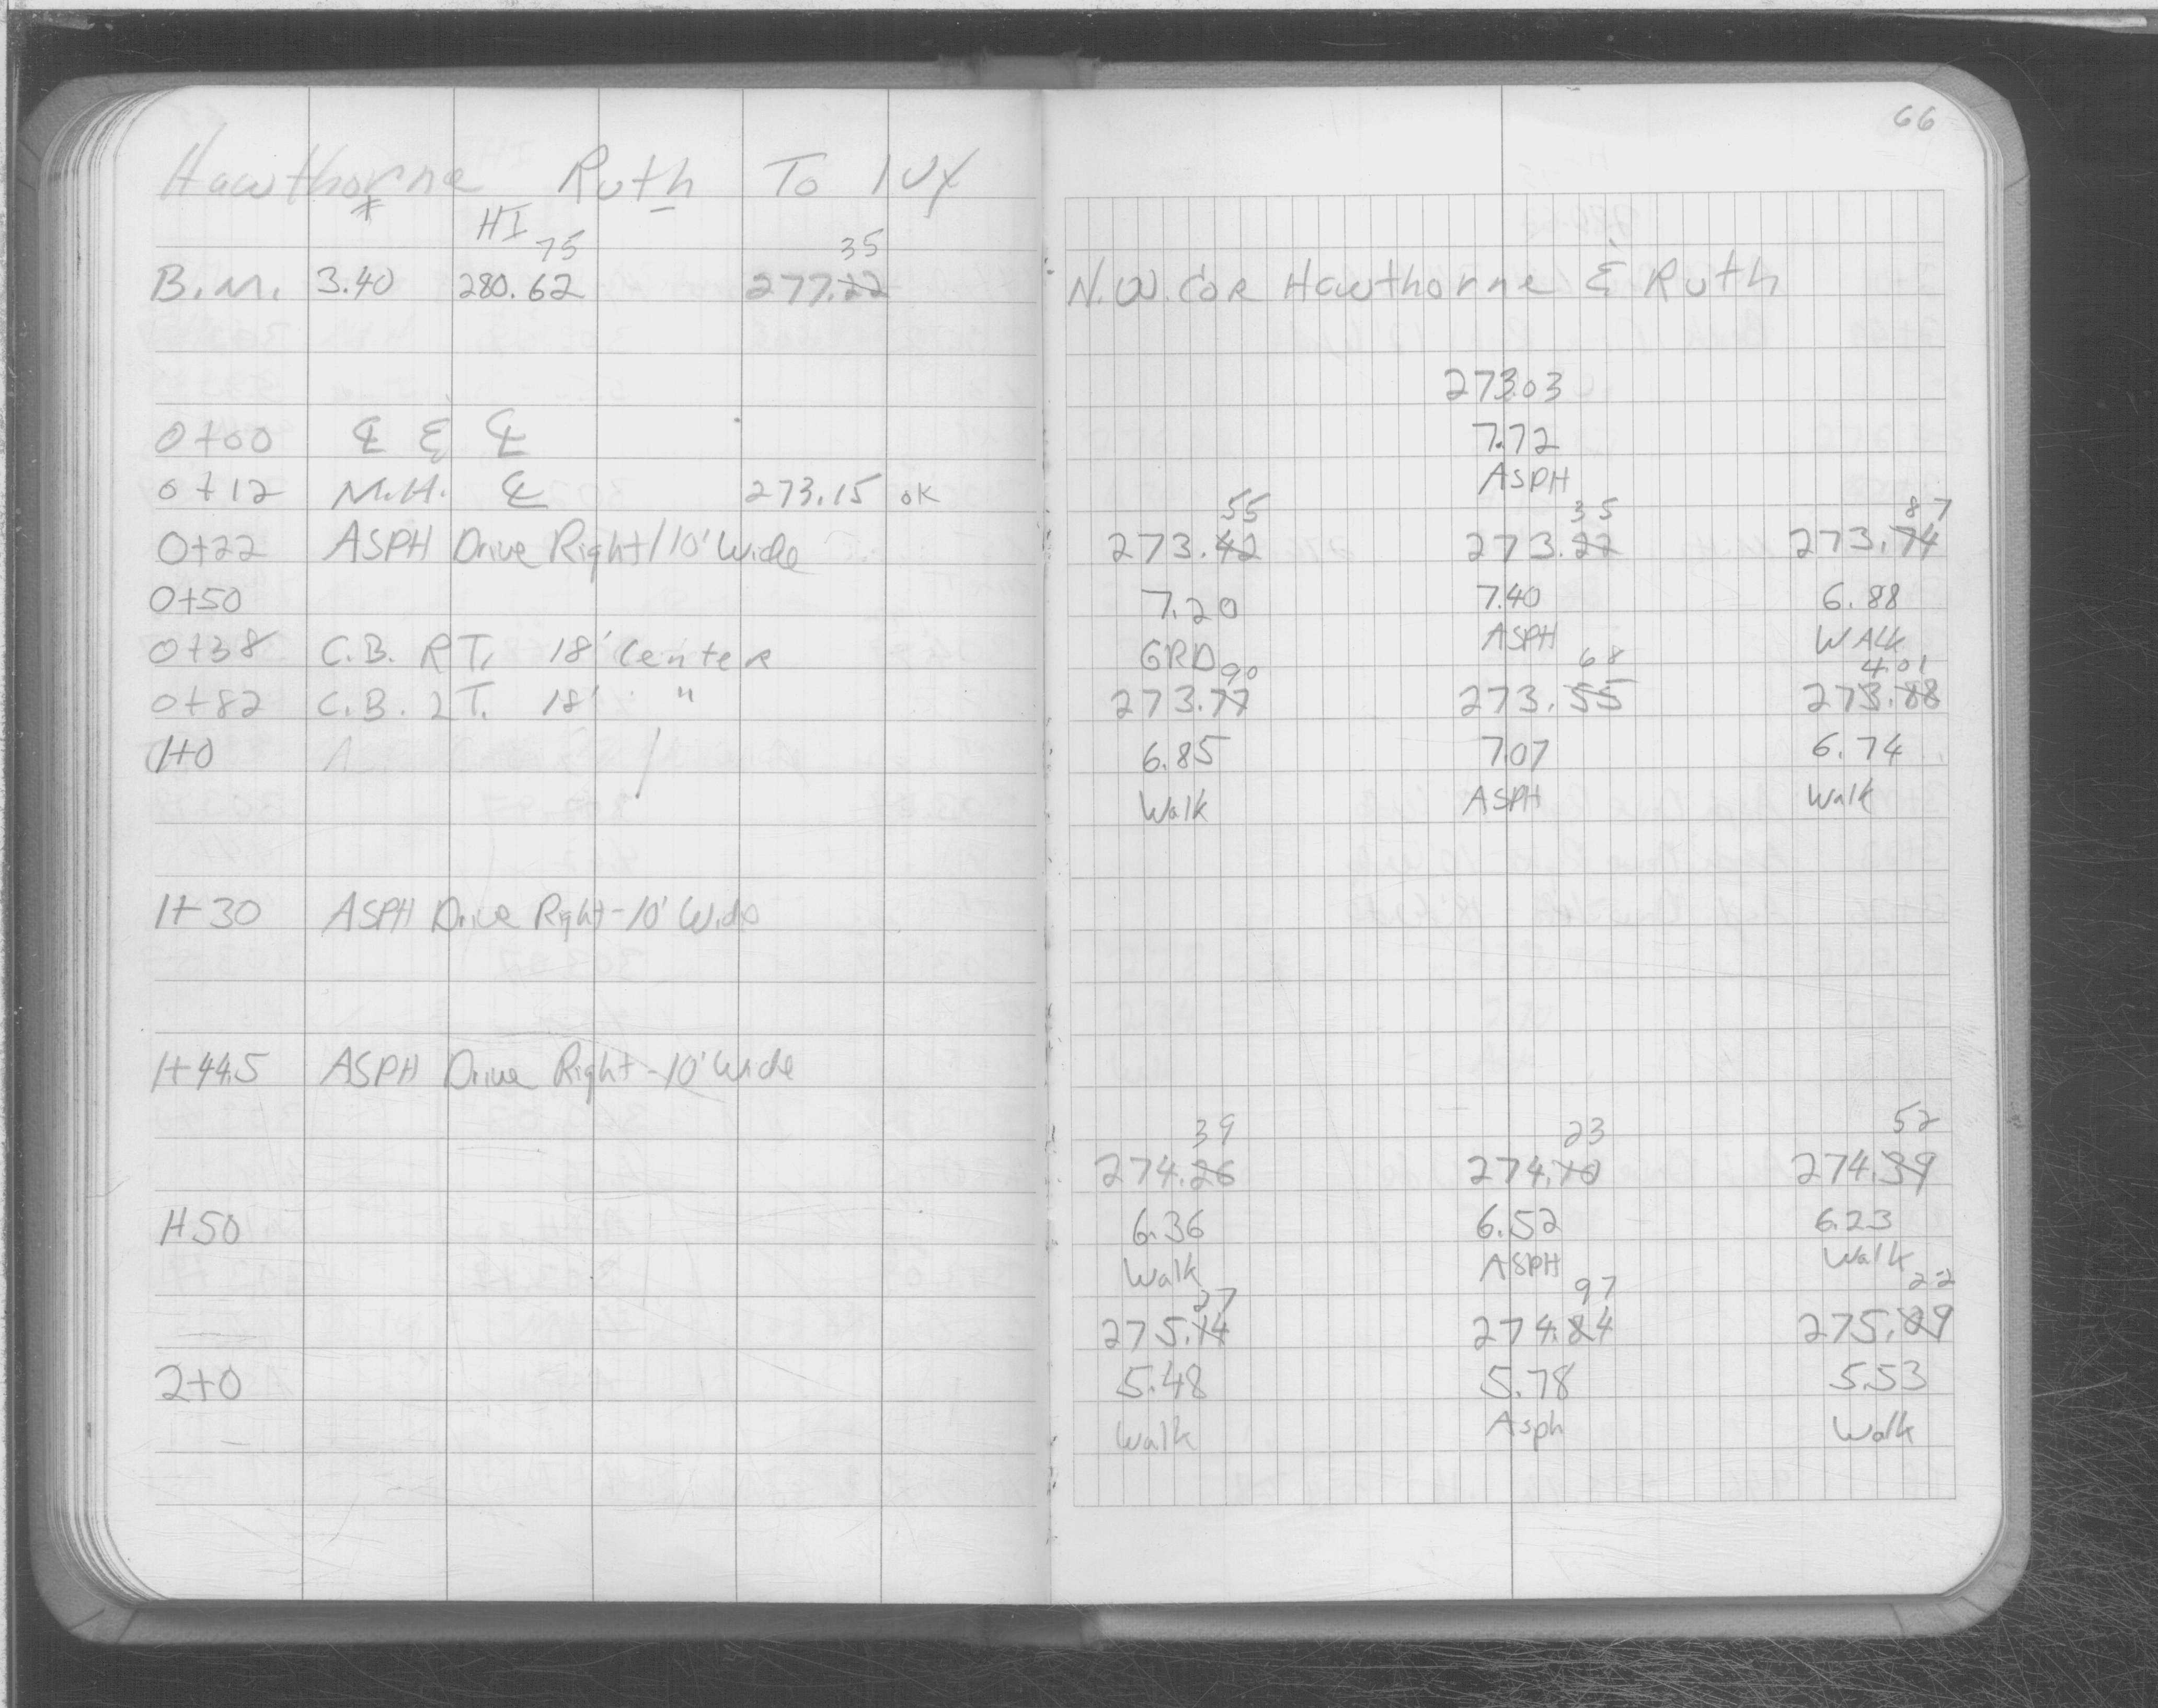 66
Hawthorne Ruth To Ivy
+ HI 75 35
B.M. 3.40 280.62 277.22 N.W. Cor Hawthorne & Ruth
273.03
0+00 ℄ & ℄ 7.72
ASPH
0+12 M.H. ℄ 273.15 OK
55 35 87
0+22 ASPH Drive Right/10' Wide 273.42 273.22 273.74
0+50 7.20 7.40 6.88
0+38 C.B. RT. 18' Center GRD ASPH WALK
90 68 4.01
0+82 C.B. LT. 18' " 273.77 273.55 273.88
1+0 6.85 7.07 6.74
Walk ASPH Walk
1+30 ASPH Drive Right-10' Wide
1+44.5 ASPH Drive Right-10' Wide
39 23 52
274.26 274.10 274.39
1+50 6.36 6.52 6.23
Walk ASPH Walk
27 97 22
275.14 274.84 275.09
2+0 5.48 5.78 5.53
Walk Asph Walk